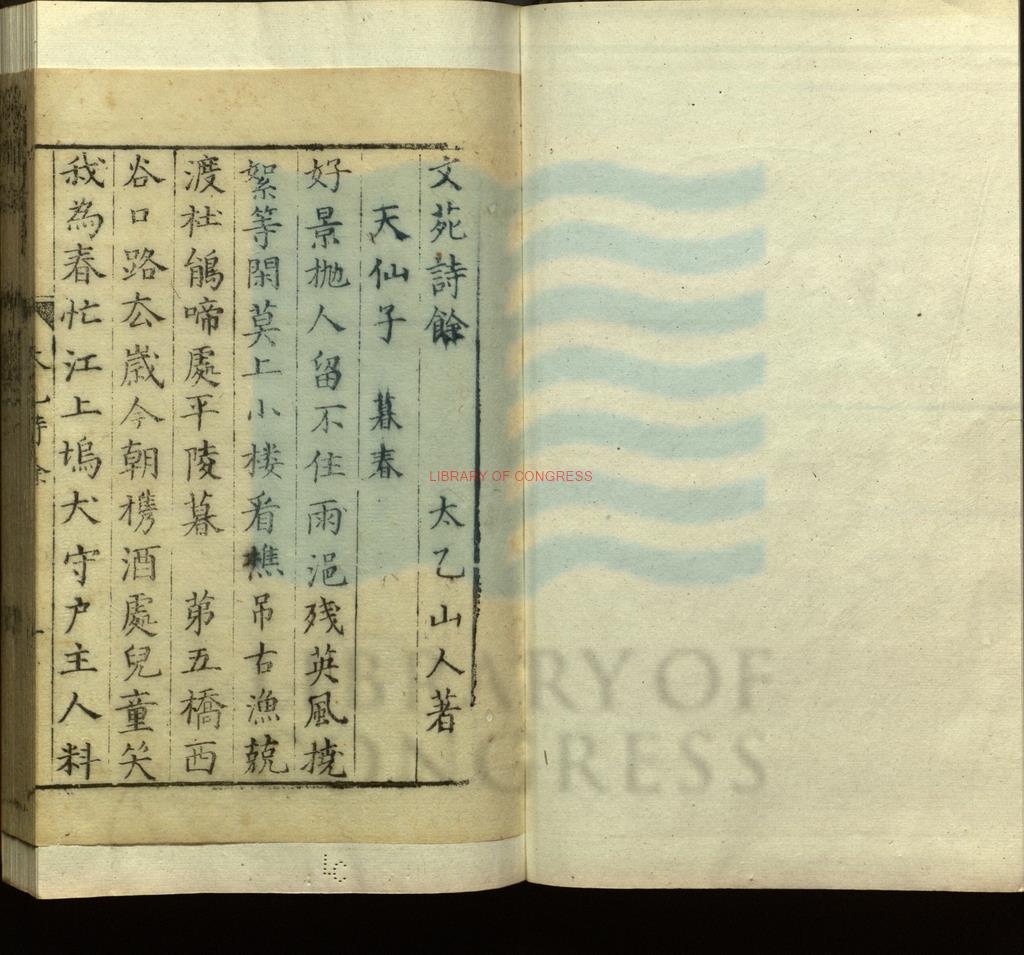 文苑詩餘 太乙山人著
天仙子 暮春
好景拋人留不住雨浥残英風撓
絮等閑莫上小楼看樵吊古漁兢
渡杜鵑啼處平陵暮 苐五橋西
谷口路厺嵗今朝檇酒處兒童笑
我為春忙江上塢犬守户主人料
LIBRARY OF CONGRESS
LIBRARY OF
CONGRESS